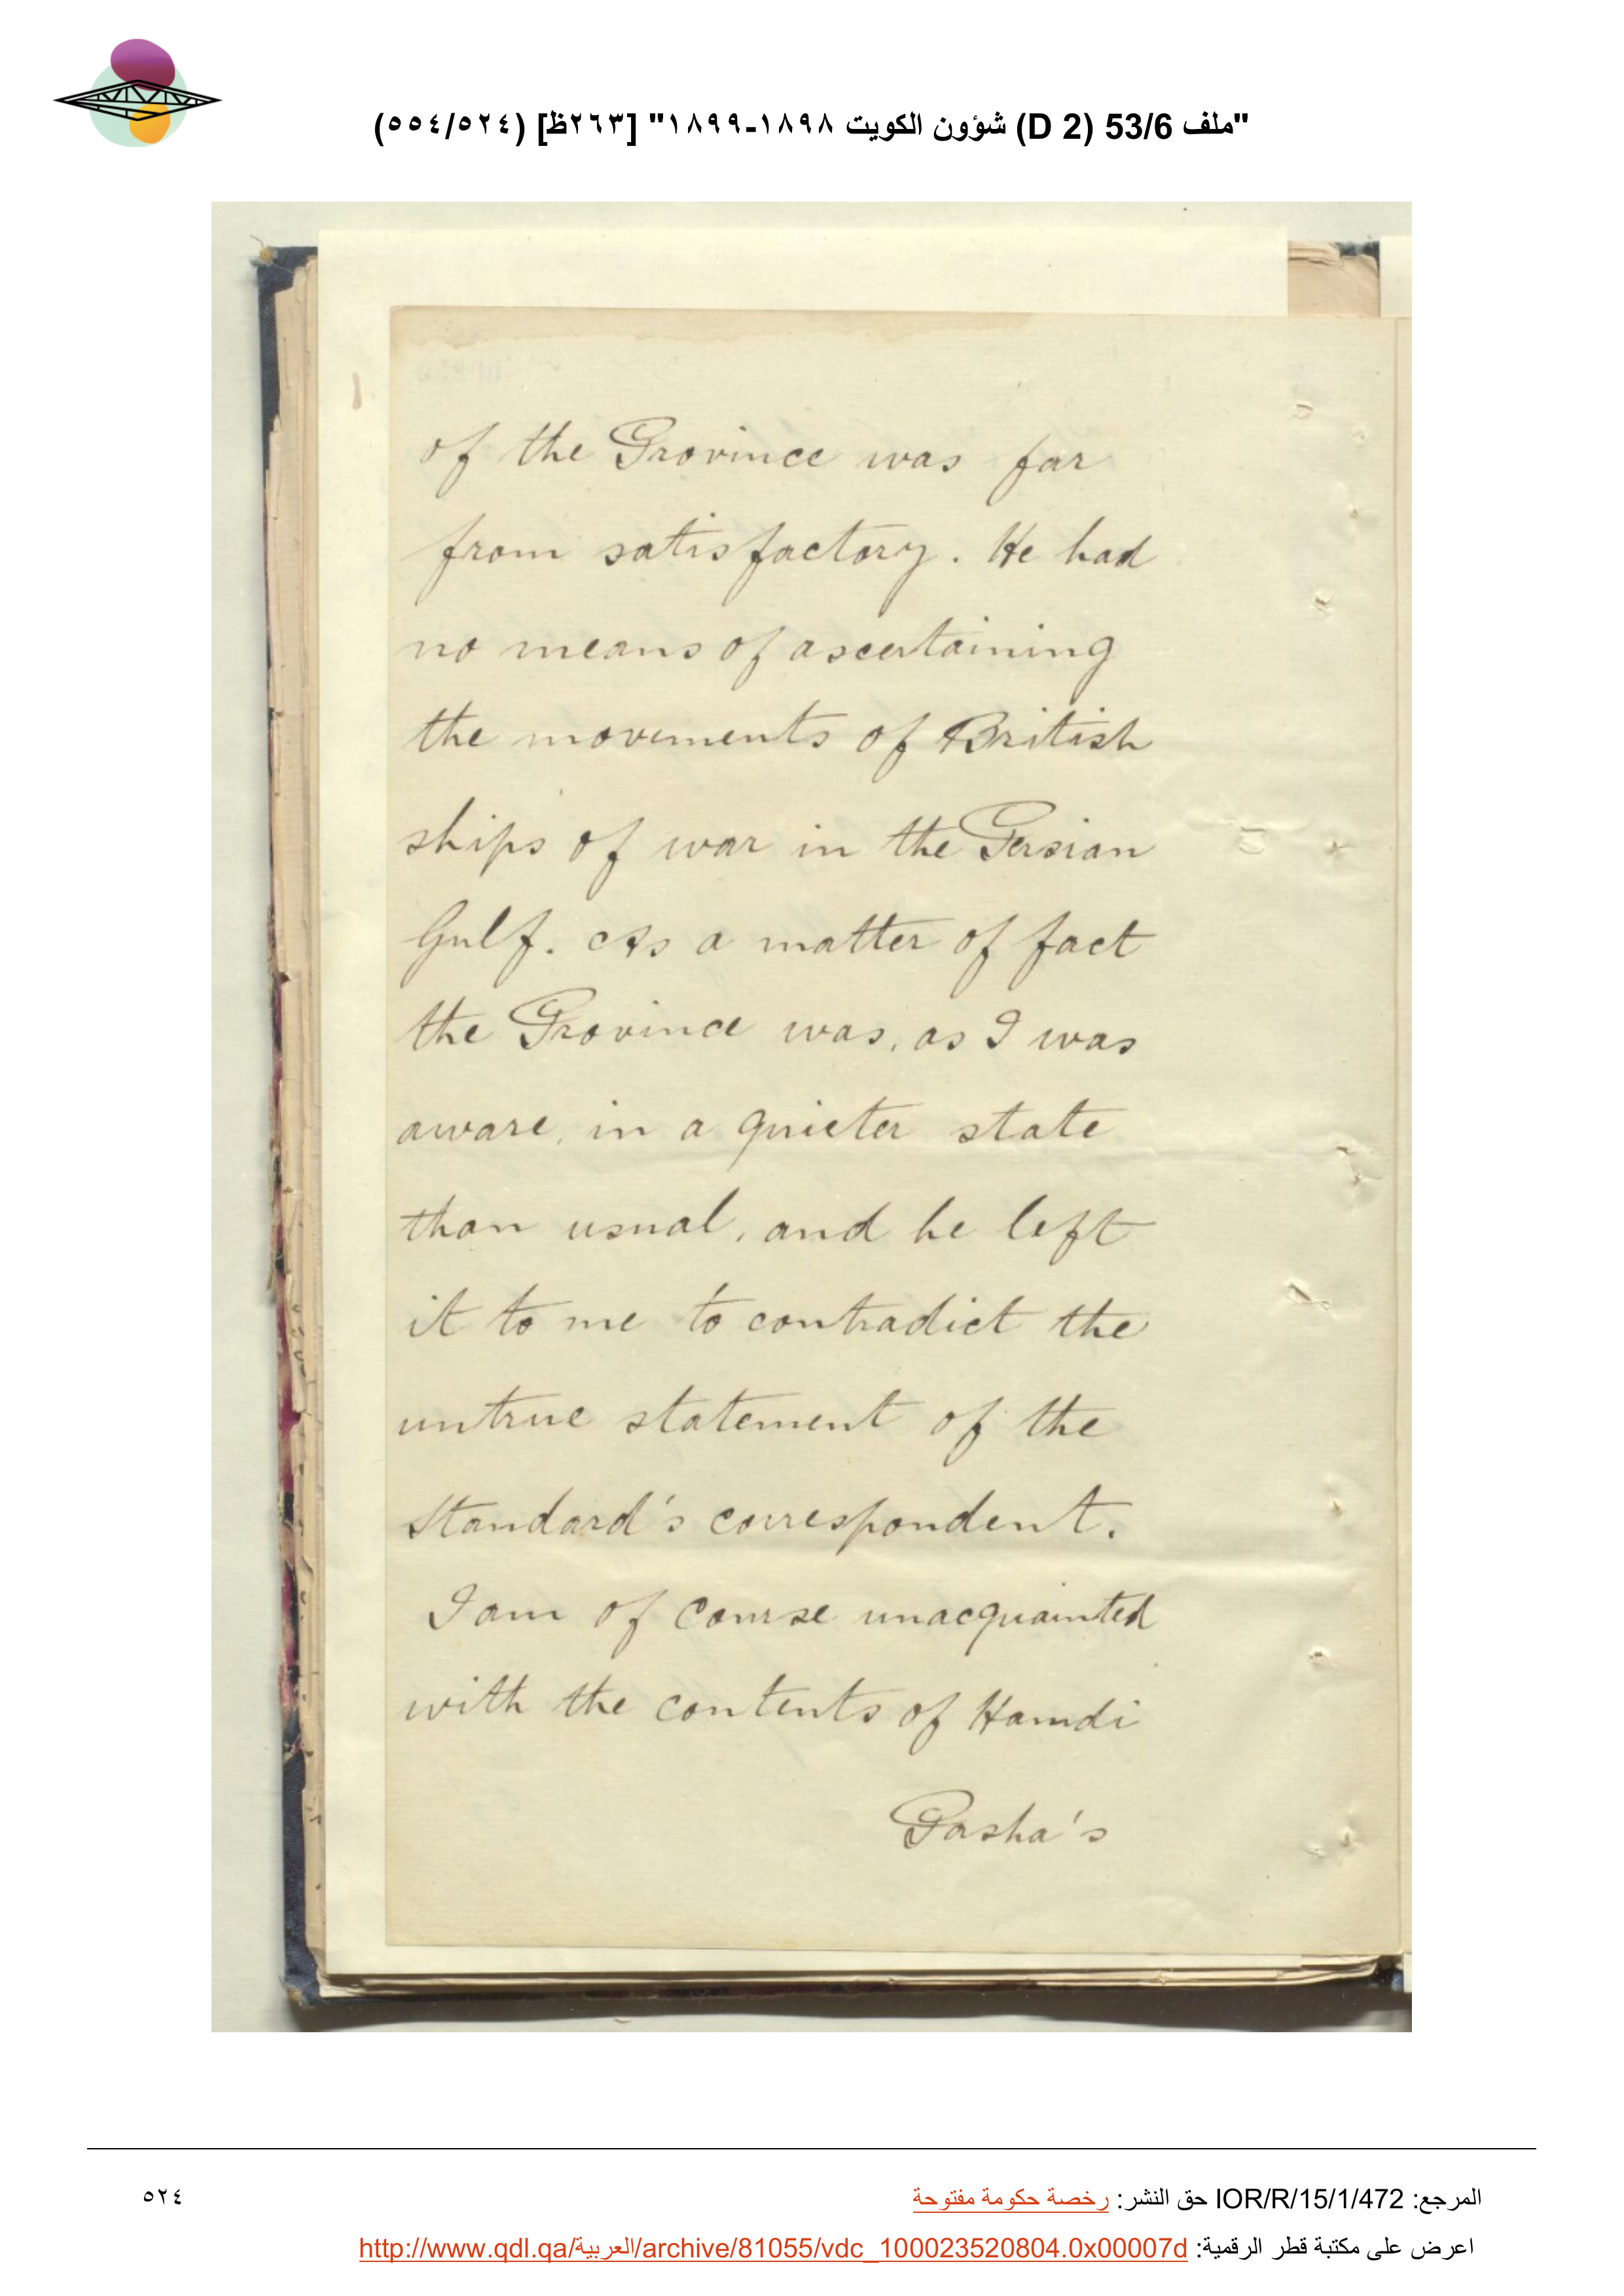 "ملف 53/6 (D 2) شؤون الكويت ١٨٩٨-١٨٩٩" [٢٦٣ظ] (٥٢٤/٥٥٤)
of the Province was far
from satisfactory. He had
no means of ascertaining
the movements of British
ships of war in the Persian
Gulf. As a matter of fact
the Province was, as I was
aware, in a quieter state
than usual, and he left
it to me to contradict the
untrue statement of the
Standard's correspondent.
I am of course unacquainted
with the contents of Hamdi
Pasha's
المرجع: IOR/R/15/1/472 حق النشر: رخصة حكومة مفتوحة
٥٢٤
اعرض على مكتبة قطر الرقمية: http://www.qdl.qa/العربية/archive/81055/vdc_100023520804.0x00007d